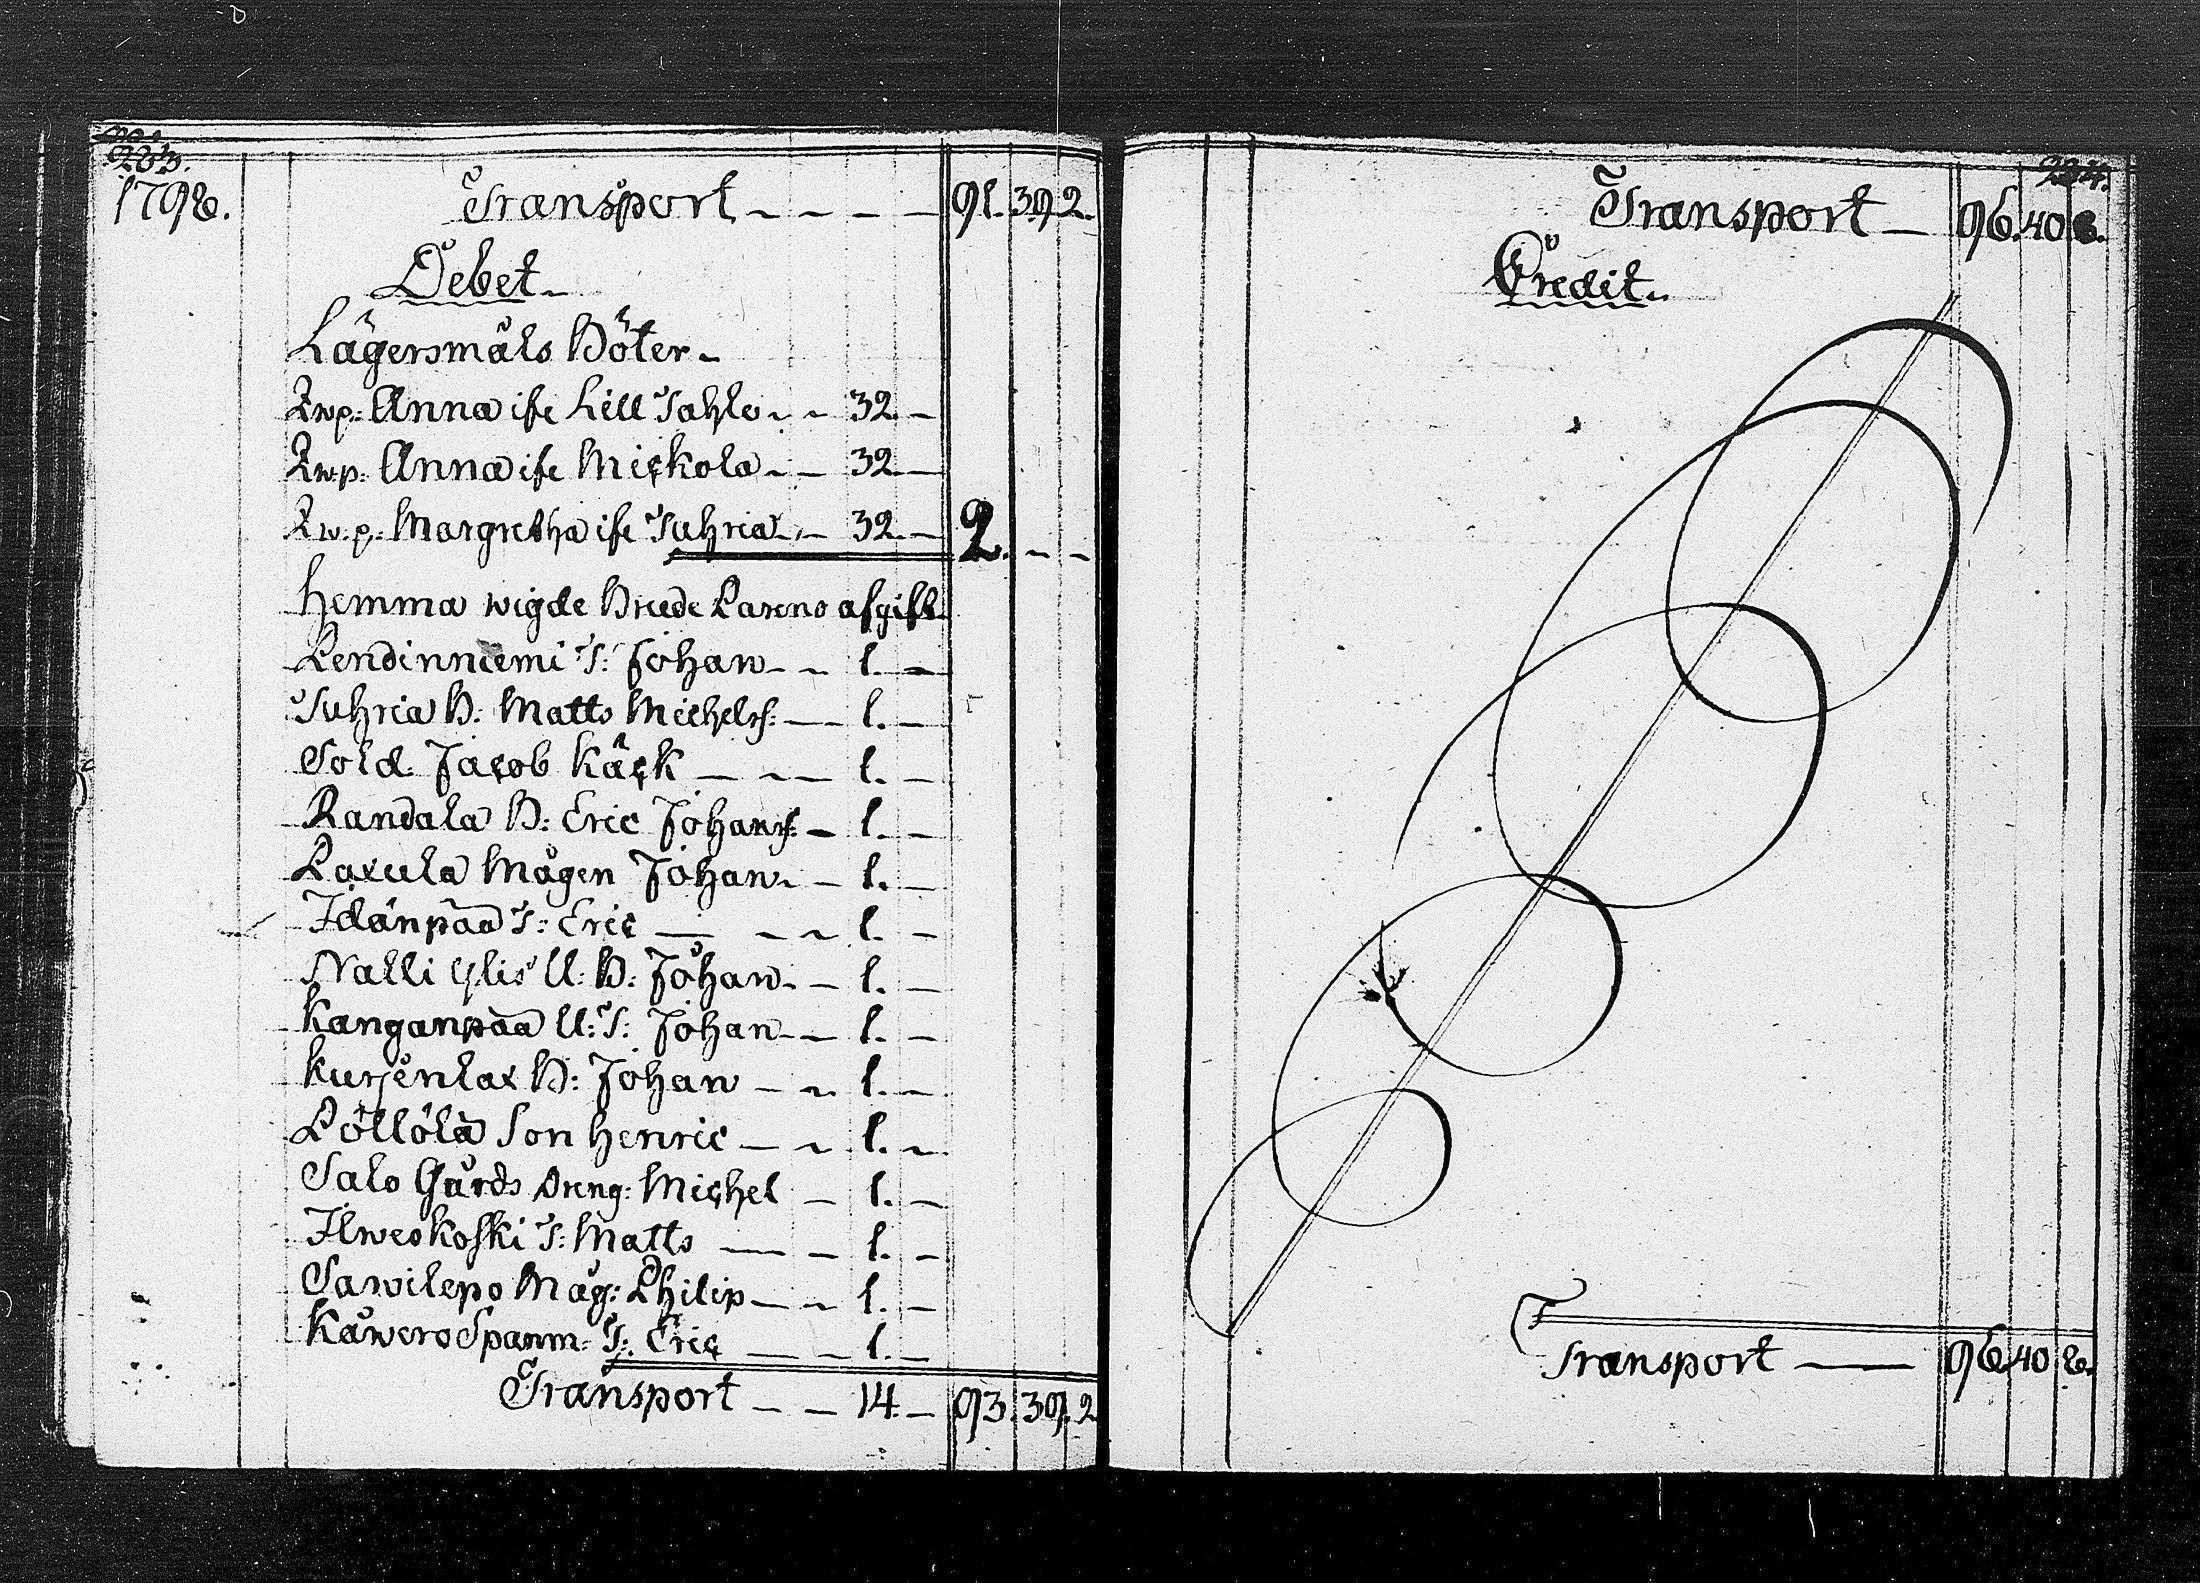 283.
1798.
Transport 91. 39 2.
Debet
Lägersmåls Böter
Qwp: Anna ifr Lill Tahlo 32
Qwp: Anna ifr Mickola 32
Qw.p: Margretha ifr Tuhria 32 2.
Hemma wigde Brude Parens afgift
Pendinniemi T: Johan 1.
Tuhria B: Matts Michelss: 1.
Sold. Jacob Käck 1.
Randala B: Eric Johanss: 1.
Paxula Mågen Johan 1.
Idänpää T: Eric 1.
Nalli Ylis U: B: Johan 1.
Kanganpää U: T: Johan 1.
Kurjenlax B: Johan 1.
Pöllölä Son Henric 1.
Salo Gårds Dreng: Michel 1.
Ilweskoski T: Matts 1.
Sawilepo Måg: Philip 1.
Käwero Spanm: T: Eric 1.
Transport 14. 93. 39. 2
Transport 96. 40 8.
Credit
Transport 96 40 8.